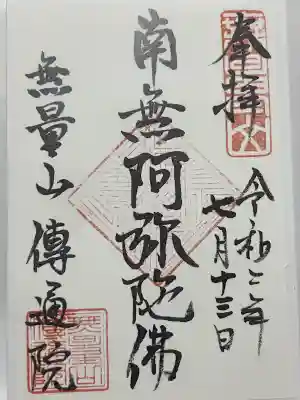 奉拝
令和二年
七月十三日
南無阿弥陀佛
無量山傳通院